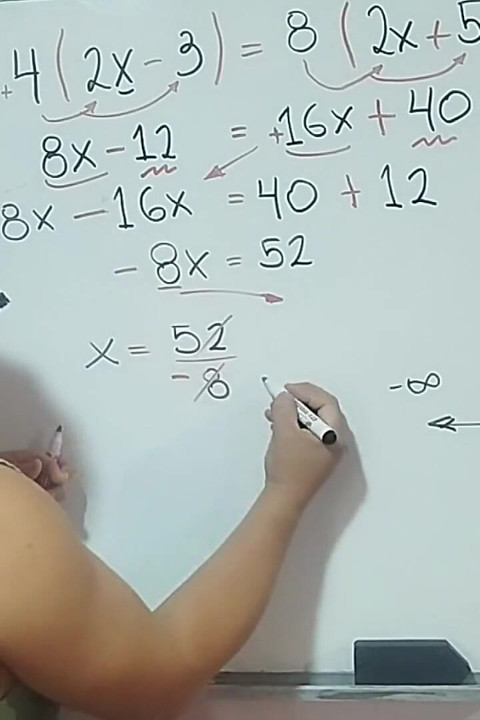 +4(2x-3) = 8(2x+5
8x-12 = +16x+40
8x-16x = 40+12
-8x = 52
x = 52/-8
-∞